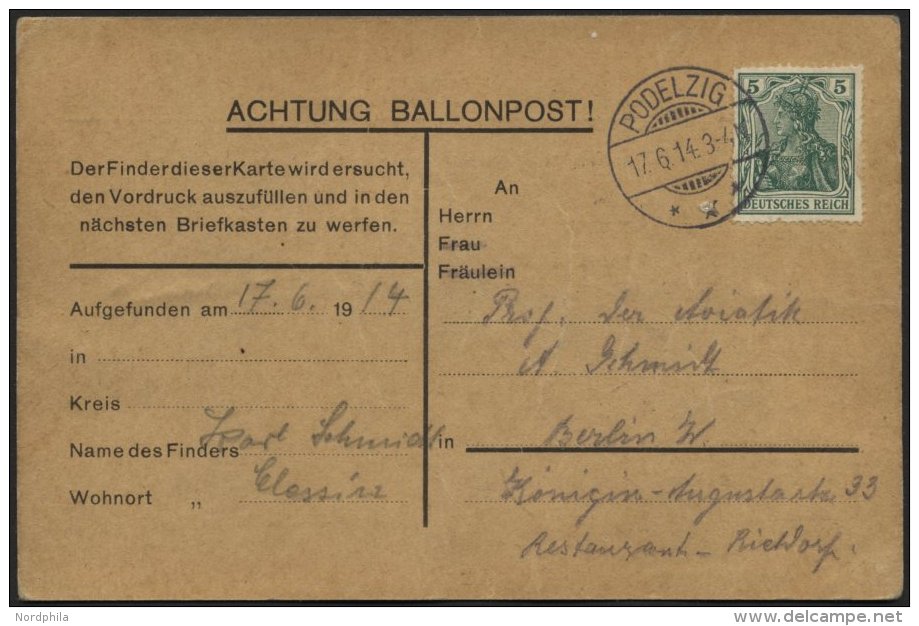 ACHTUNG BALLONPOST!
Der Finder dieser Karte wird ersucht,
den Vordruck auszufüllen und in den
nächsten Briefkasten zu werfen.
Aufgefunden am 17. 6. 19 14
in
Kreis
Name des Finders Karl Schmidt
Wohnort „ Clessin
PODELZIG
17.6.14.3-4N
5 5
DEUTSCHES REICH
An
Herrn
Frau
Fräulein
Prof. der Aviatik
A. Schmidt
in Berlin W.
Königin-Augustastr 33
Restaurant-
Nordphila
delcampe.net